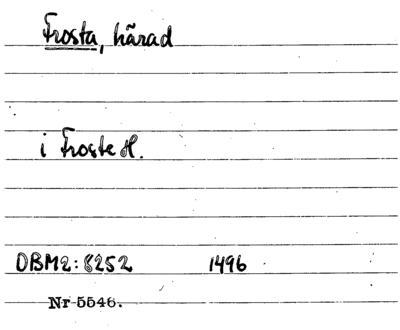 Frosta, härad
i Froste H.
DBM2: 8252 1496
Nr 5546.